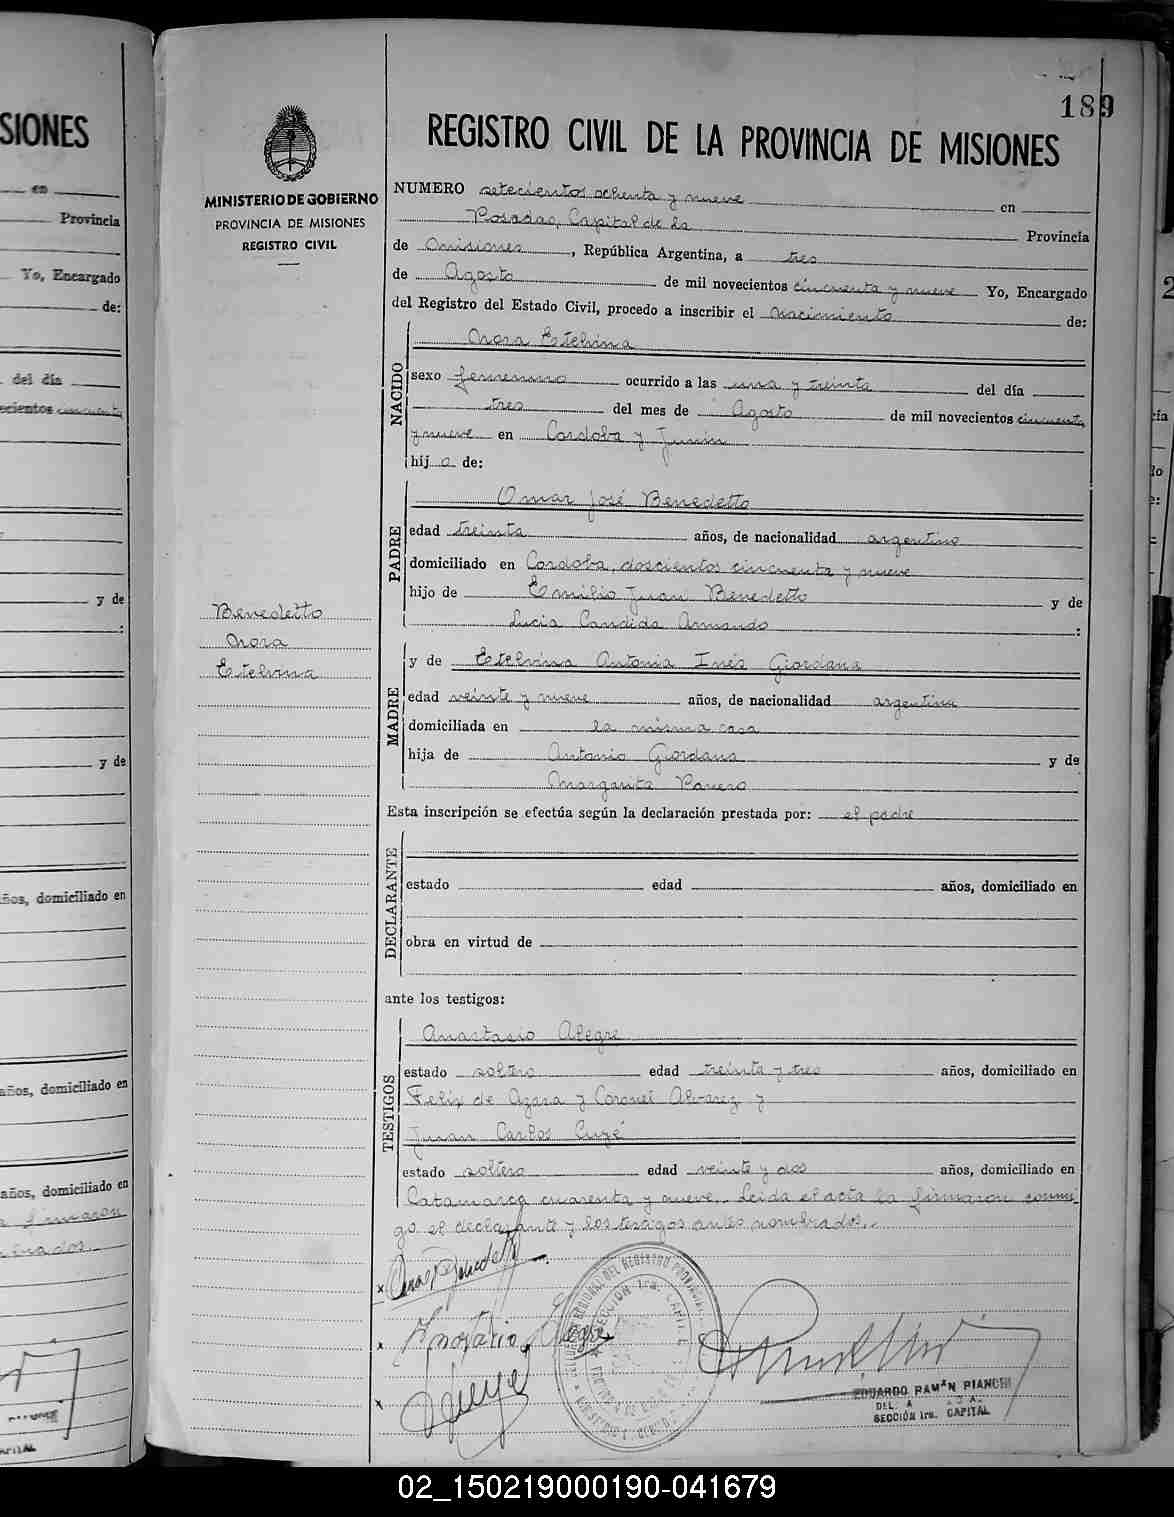 SIONES
en
Provincia
Yo, Encargado
de:
del día
ecientos cincuenta
y de
:
y de
años, domiciliado en
años, domiciliado en
años, domiciliado en
firmaron
brados.
189
MINISTERIO DE GOBIERNO
PROVINCIA DE MISIONES
REGISTRO CIVIL
Benedetto
Nora
Estelvina
REGISTRO CIVIL DE LA PROVINCIA DE MISIONES
NUMERO setecientos ochenta y nueve en
Posadas, Capital de la Provincia
de Misiones, República Argentina, a tres
de Agosto de mil novecientos cincuenta y nueve Yo, Encargado
del Registro del Estado Civil, procedo a inscribir el nacimiento de:
NACIDO
Nora Estelvina
sexo femenino ocurrido a las una y treinta del día
tres del mes de Agosto de mil novecientos cincuenta
y nueve en Cordoba y Junin
hij a de:
PADRE
Omar José Benedetto
edad treinta años, de nacionalidad argentino
domiciliado en Cordoba, doscientos cincuenta y nueve
hijo de Emilio Juan Benedetto y de
Lucia Candida Armando :
MADRE
y de Estelvina Antonia Inés Giordana
edad veinte y nueve años, de nacionalidad argentina
domiciliada en la misma casa
hija de Antonio Giordana y de
Margarita Panero
Esta inscripción se efectúa según la declaración prestada por: el padre
DECLARANTE
estado edad años, domiciliado en
obra en virtud de
ante los testigos:
TESTIGOS
Anastasio Alegre
estado soltero edad treinta y tres años, domiciliado en
Felix de Azara y Coronel Alvarez y
Juan Carlos Cuzé
estado soltero edad veinte y dos años, domiciliado en
Catamarca cuarenta y nueve. Leida el acta la firmaron conmi-
go el declarante y los testigos antes nombrados.
x
x Anastasio Alegre
x
EDUARDO RAMON PIANCHI
SECCIÓN 1ra. CAPITAL
02_150219000190-041679